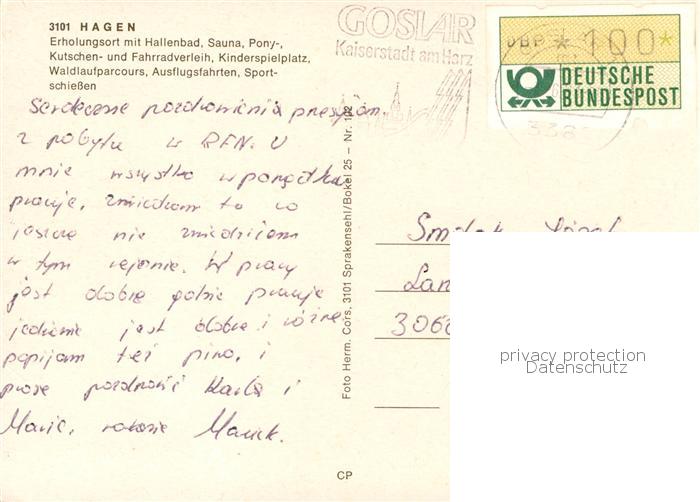 3101 HAGEN
Erholungsort mit Hallenbad, Sauna, Pony-,
Kutschen- und Fahrradverleih, Kinderspielplatz,
Waldlaufparcours, Ausflugsfahrten, Sport-
schießen
Serdeczne pozdrowienia przesyłam
z pobytu w RFN. U
mnie wszystko w porządku
pracuje, zwiedzam to co
jeszcze nie zwiedziłem
w tym rejonie. W pracy
jest dobrze gdzie pracuje
jedzenie jest dobre i różne
popijam też piwo, i
proszę pozdrowić Karla i
Marie, Marek.
Foto Herm. Cors, 3101 Sprakensehl/Bokel 25 – Nr. 102
CP
GOSLAR
Kaiserstadt am Harz
DBP * 100 *
DEUTSCHE
BUNDESPOST
privacy protection
Datenschutz